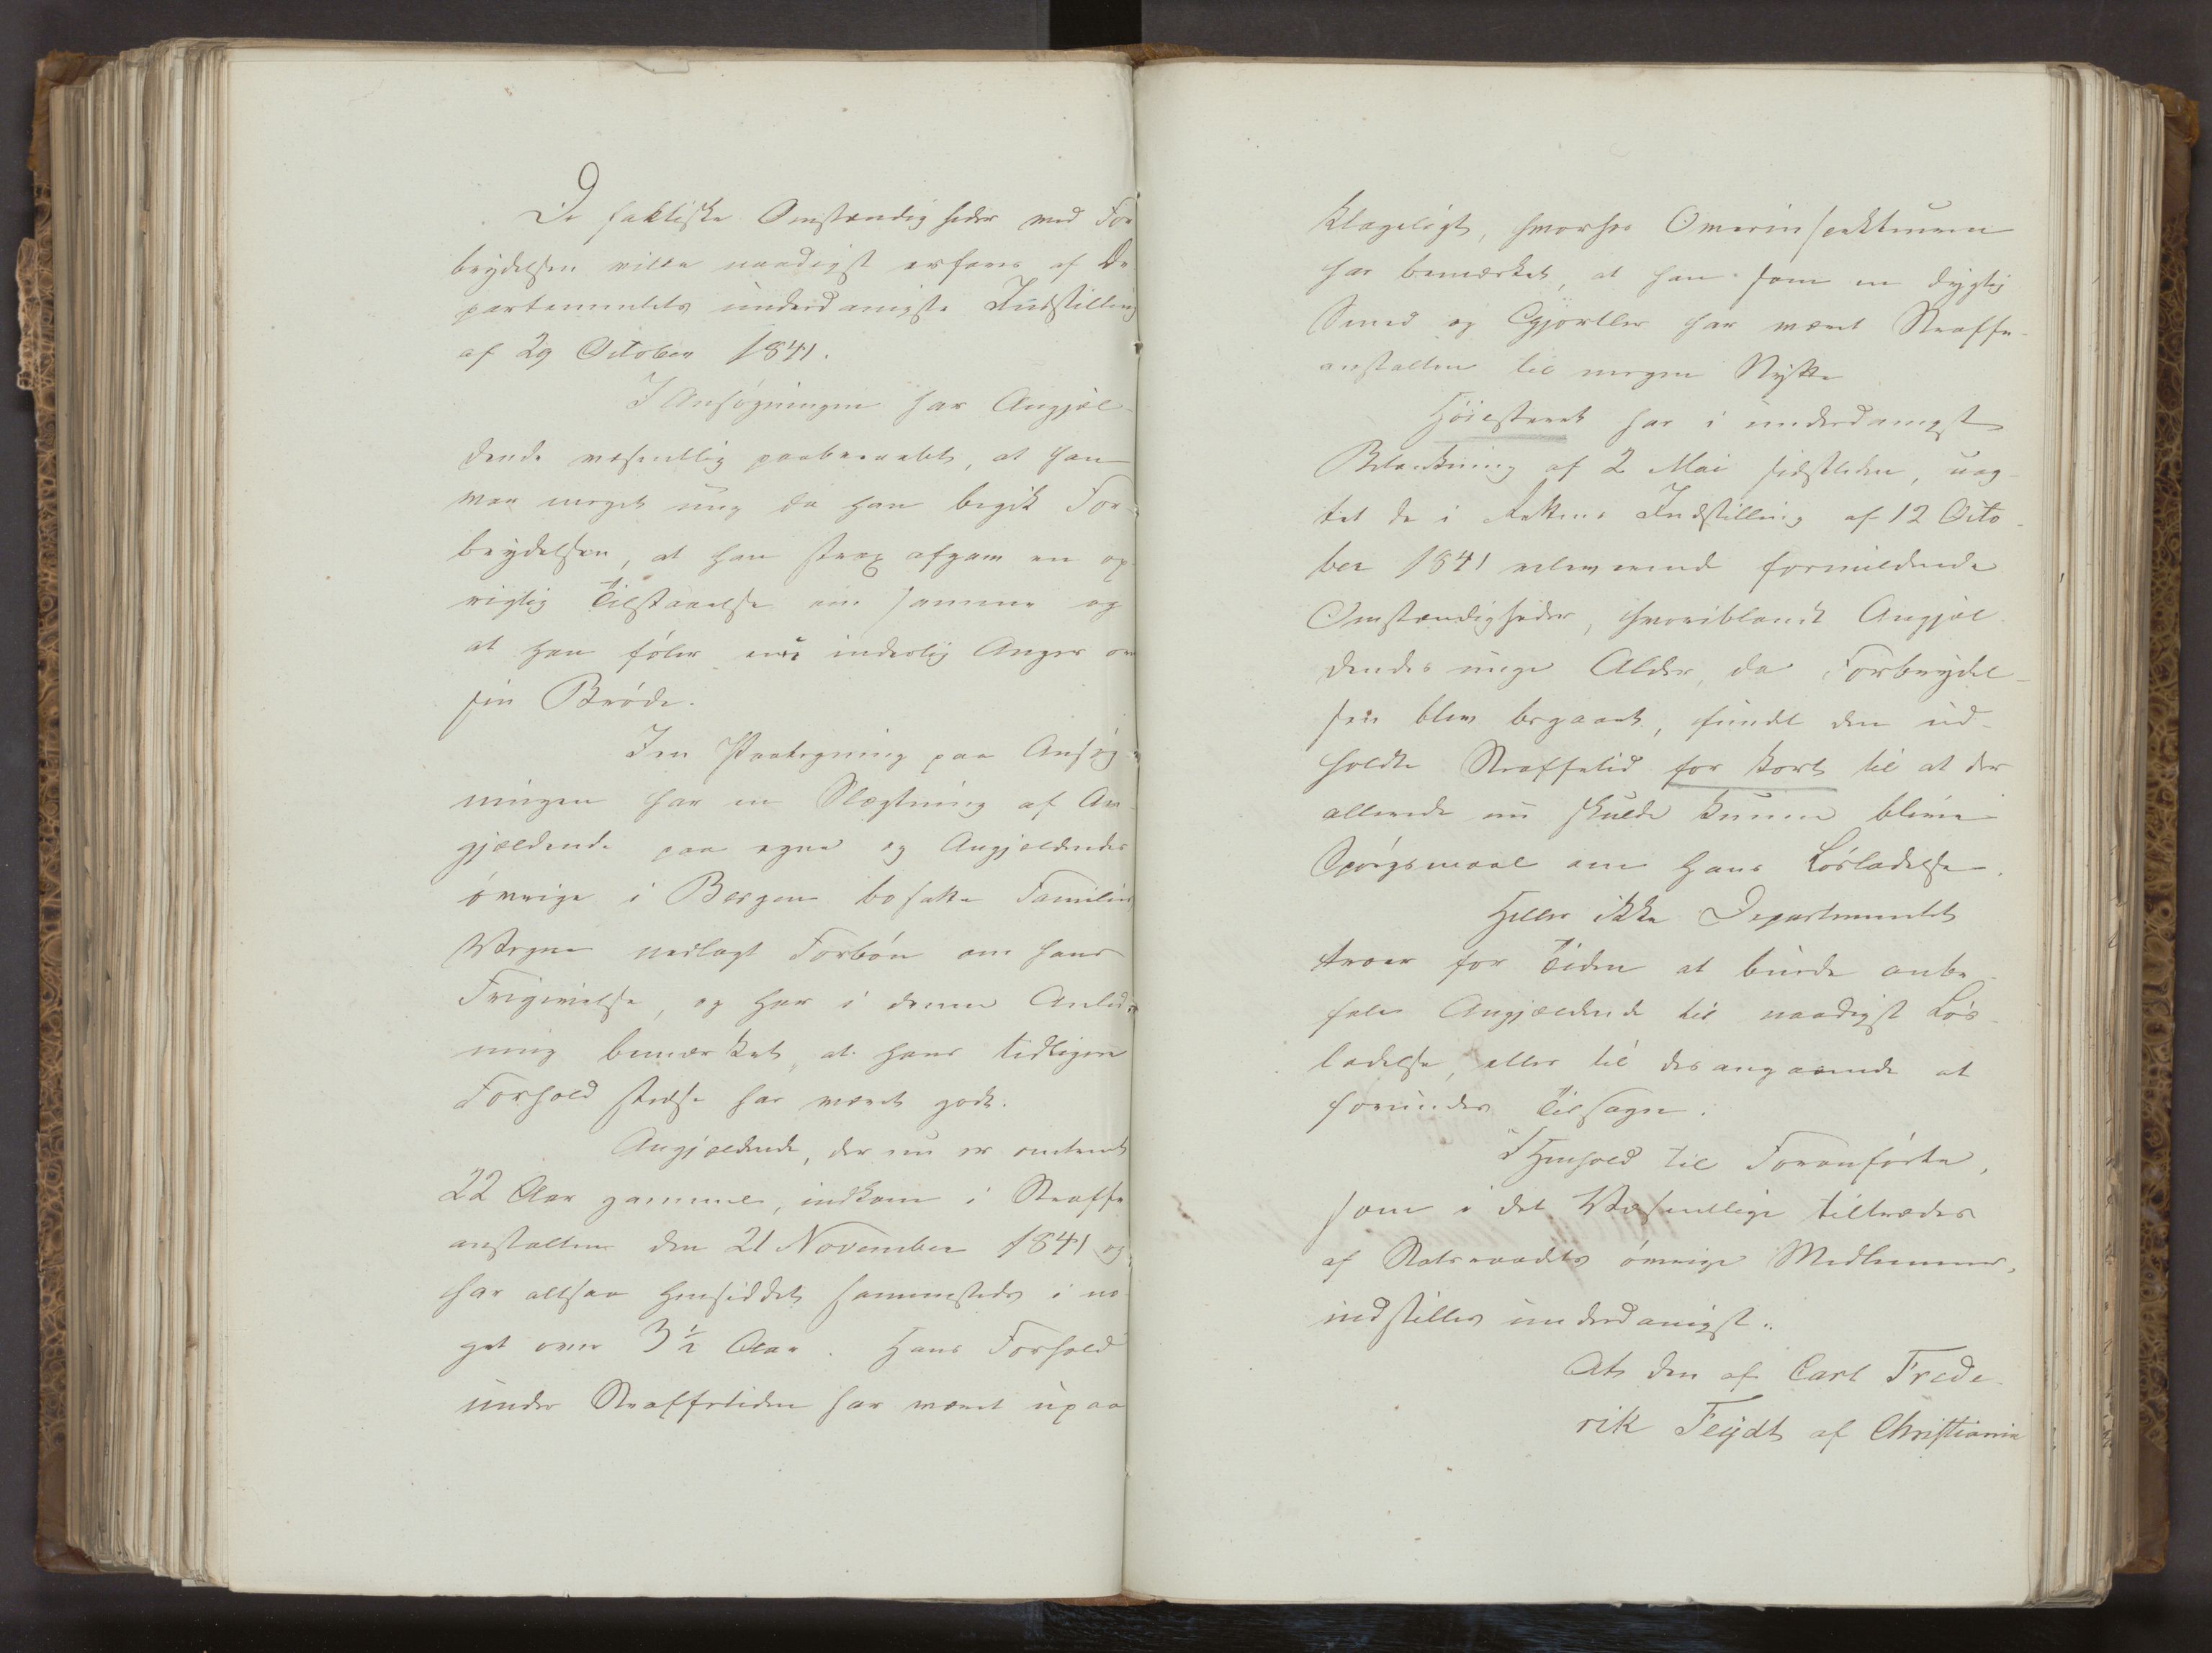 De faktiske Omstændigheder med For
brydelsen ville naadigst erfares af De
partementets underdanigste Indstilling
af 29 October 1841.
I Ansøgningen har Angjæl-
dende væsentlig paaberaabt, at han
var meget ung da han begik For-
brydelsen, at han strax afgav en op
rigtig Tilstaaelse om samme og
at han føler en inderlig Anger over
sin Brøde.
I en Paategning paa Ansøg-
ningen har en Slægtning af An-
gjældende paa egne og Angjældendes
øvrige i Bergen bosatte Families
Vegne nedlagt Forbøn om hans
Frigivelse, og har i denne Anled-
ning bemærket, at hans tidligere
Forhold stedse har været godt.
Angjældende, der nu er omtrent
22 Aar gammel, indkom i Straffe
anstalten den 21 November 1841 og
har altsaa hensiddet sammesteds i no
get over 3 ½ Aar. Hans Forhold
under Straffetiden har været upaa
klageligt, hvorhos Overinspekteuren
har bemærket, at han som en dygtig
Smed og Gjørtler har været Straffe-
anstalten til megen Nytte
Høiesteret har i underdanigst
Betænkning af 2 Mai sidstleden, uag-
tet de i Rettens Indstilling af 12 Octo-
ber 1841 releverende formildende
Omstændigheder, hvoriblandt Angjæl
dendes unge Alder, da Forbrydel-
sen blev begaaet, fundet den ud-
holdte Straffetid for kort til at der
allerede nu skulde kunne blive
Spørgsmaal om hans Løsladelse.
Heller ikke Departementet
troer for Tiden at burde anbe-
fale Angjældende til naadigst Løs-
ladelse, eller til desangaaende at
forundes Tilsagn.
I Henhold til Foranførte,
som i det Væsentlige tiltrædes
af Statsraadets øvrige Medlemmer,
indstilles underdanigst:
At den af Carl Frede-
rik Feydt af Christiania